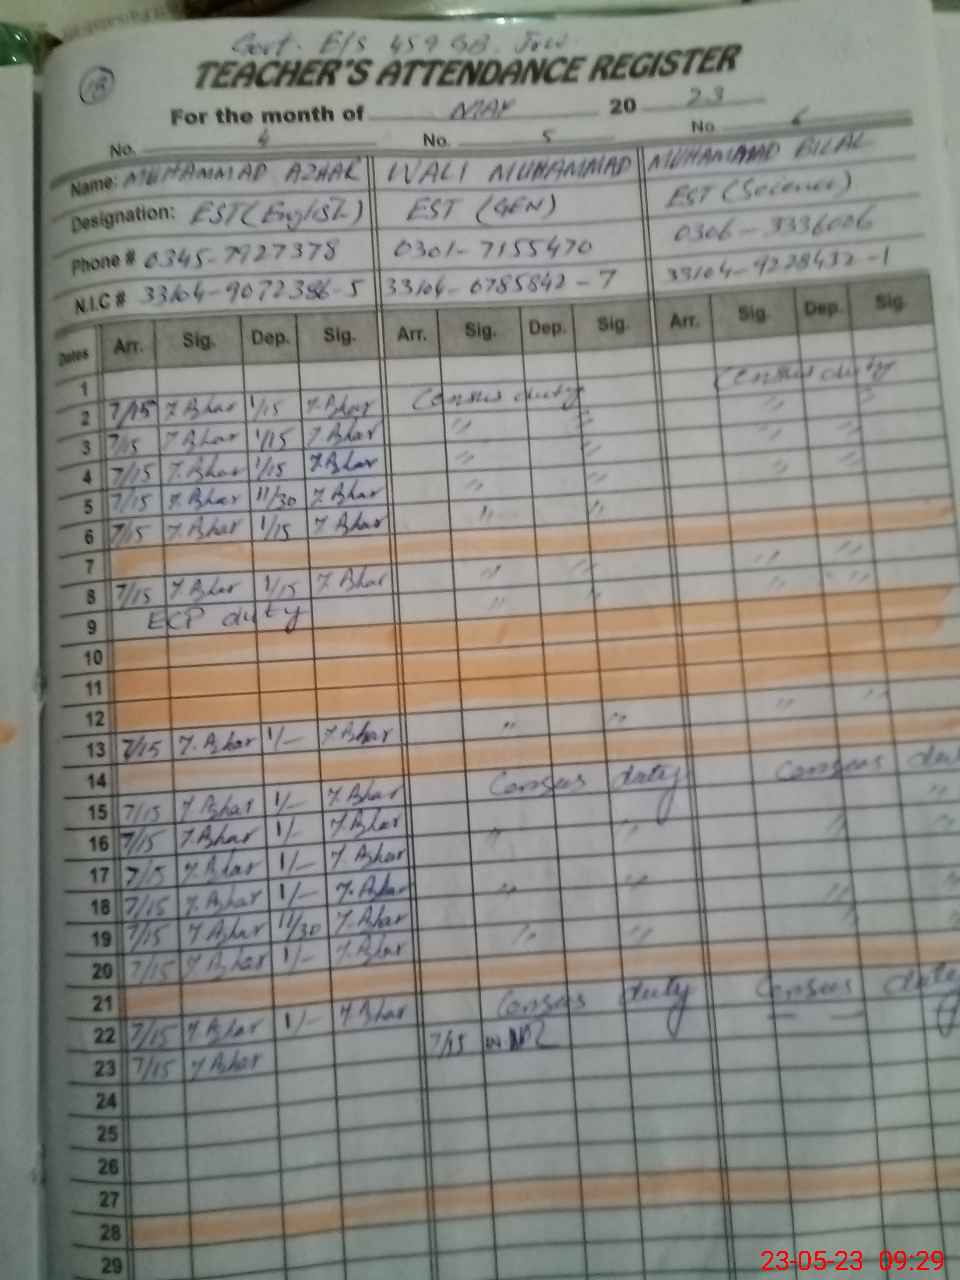 Govt. E/S 459 GB.
TEACHER'S ATTENDANCE REGISTER
18
For the month of MAY 20 23
No. 4 No. 5 No. 6
Name: MUHAMMAD AZHAR WALI MUHAMMAD MUHAMMAD BILAL
Designation: EST (English) EST (GEN) EST (Science)
Phone # 0345-7927378 0301-7155470 0306-3336006
N.I.C # 33104-9072386-5 33104-6785842-7 33104-9228432-1
Dates Arr. Sig. Dep. Sig. Arr. Sig. Dep. Sig. Arr. Sig. Dep. Sig.
1 Census duty
2 7/15 Azhar 1/15 Azhar Census duty " "
3 7/15 Azhar 1/15 Azhar " " " "
4 7/15 Azhar 1/15 Azhar " " " "
5 7/15 Azhar 11/30 Azhar " "
6 7/15 Azhar 1/15 Azhar " "
7 " "
8 7/15 Azhar 1/15 Azhar " " " "
9 ECP duty " "
10
11
12 " "
13 7/15 Azhar 1/- Azhar " "
14 Census duty
15 7/15 Azhar 1/- Azhar Census duty "
16 7/15 Azhar 1/- Azhar " " " "
17 7/15 Azhar 1/- Azhar
18 7/15 Azhar 1/- Azhar " " " "
19 7/15 Azhar 11/30 Azhar " " " "
20 7/15 Azhar 1/- Azhar
21 Census duty
22 7/15 Azhar 1/- Azhar Census duty
23 7/15 Azhar 7/15
24
25
26
27
28
29
23-05-23 09:29